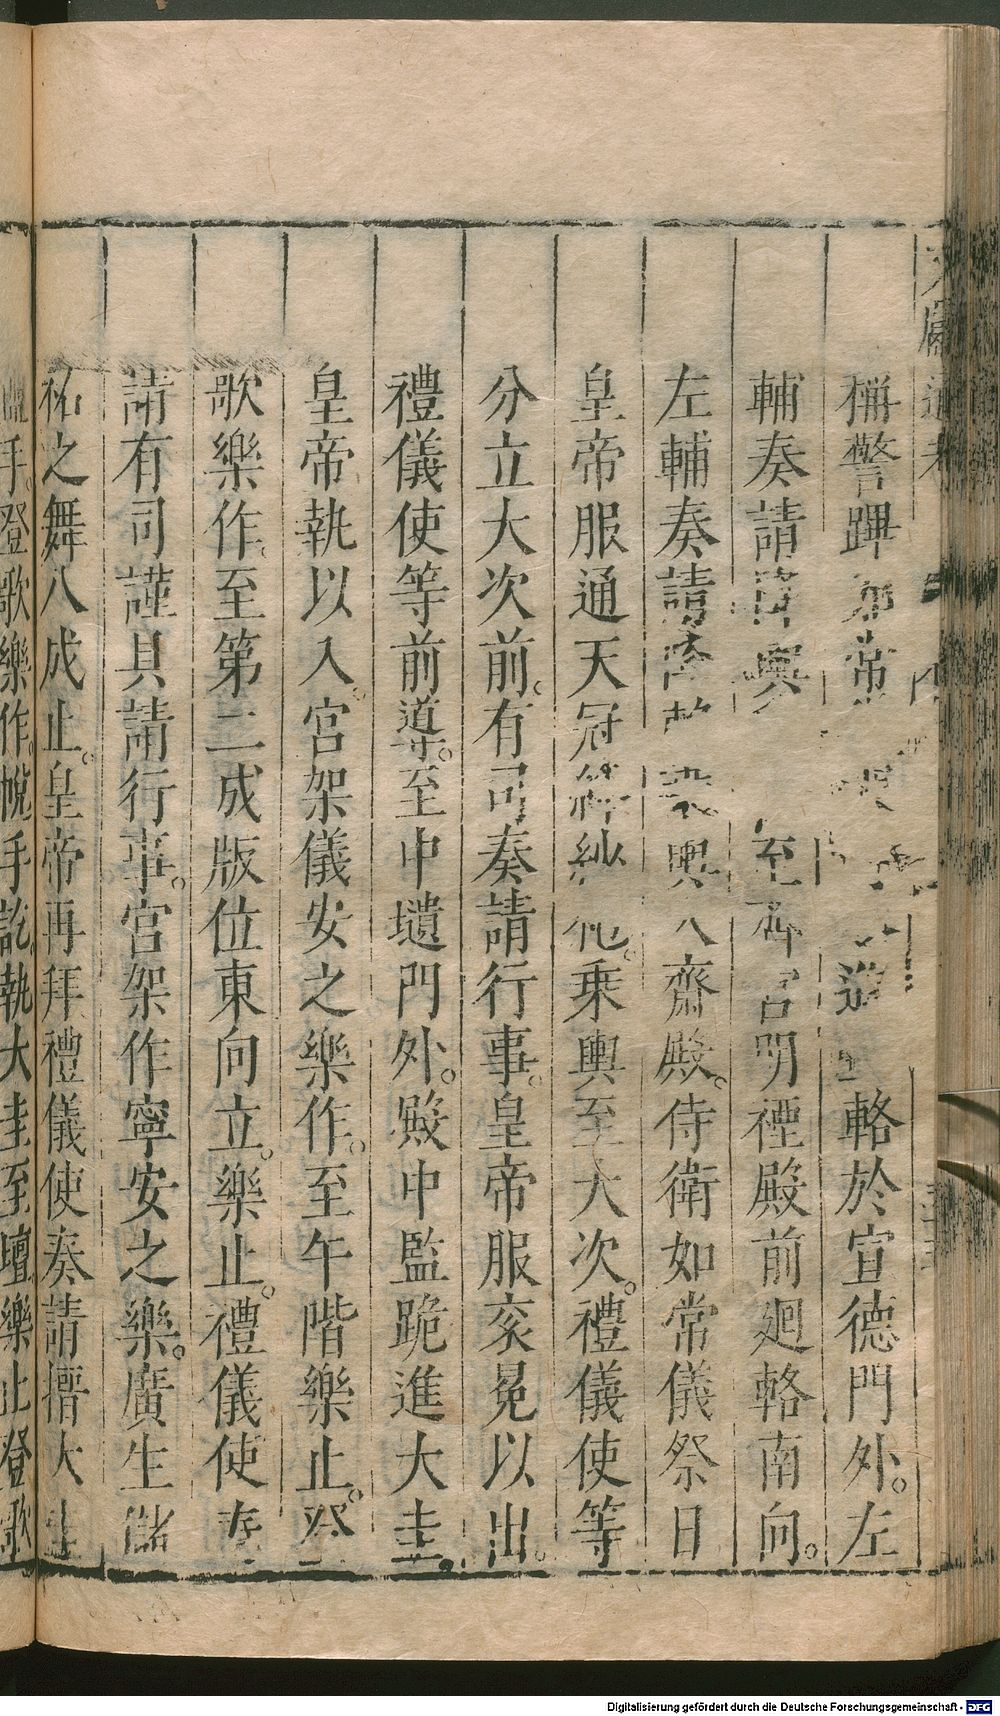 稱警蹕如常　輅於宣德門外。左
輔奏請　輿　至　宮明禋殿前廻輅南向。
左輔奏請降　輿入齋殿。侍衛如常儀祭日
皇帝服通天冠絳紗袍。乘輿至大次。禮儀使等
分立大次前。有司奏請行事。皇帝服衮冕以出。
禮儀使等前導。至中壝門外。殿中監跪進大圭。
皇帝執以入。宮架儀安之樂作。至午階樂止。登
歌樂作。至第二成版位東向立。樂止。禮儀使奏
請有司謹具請行事。宮架作寧安之樂。廣生儲
祐之舞八成止。皇帝再拜禮儀使奏請搢大圭
手。登歌樂作。帨手訖。執大圭至壇樂止登歌
Digitalisierung gefördert durch die Deutsche Forschungsgemeinschaft - DFG